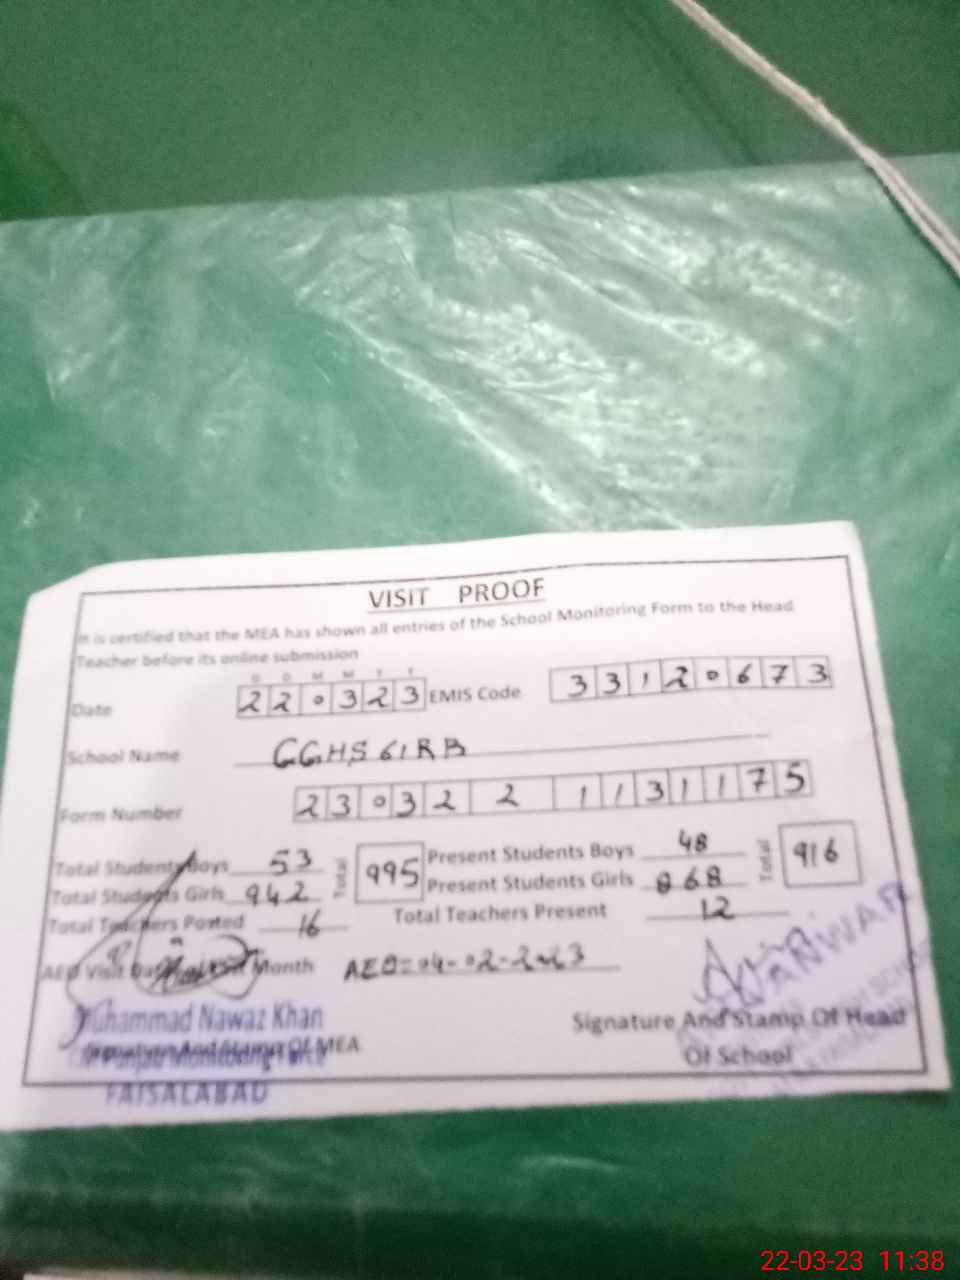 VISIT PROOF
It is certified that the MEA has shown all entries of the School Monitoring Form to the Head
Teacher before its online submission
D D M M Y Y
Date 220323 EMIS Code 33120673
School Name GGHS 61RB
Form Number 23032 2 1131175
Total Students Boys 53 Total 995 Present Students Boys 48 Total 916
Total Students Girls 942 Present Students Girls 868
Total Teachers Posted 16 Total Teachers Present 12
AEO Visit Month AEO=04-02-2023
Muhammad Nawaz Khan
Signature And Stamp Of MEA
Signature And Stamp Of Head
Of School
FAISALABAD
22-03-23 11:38